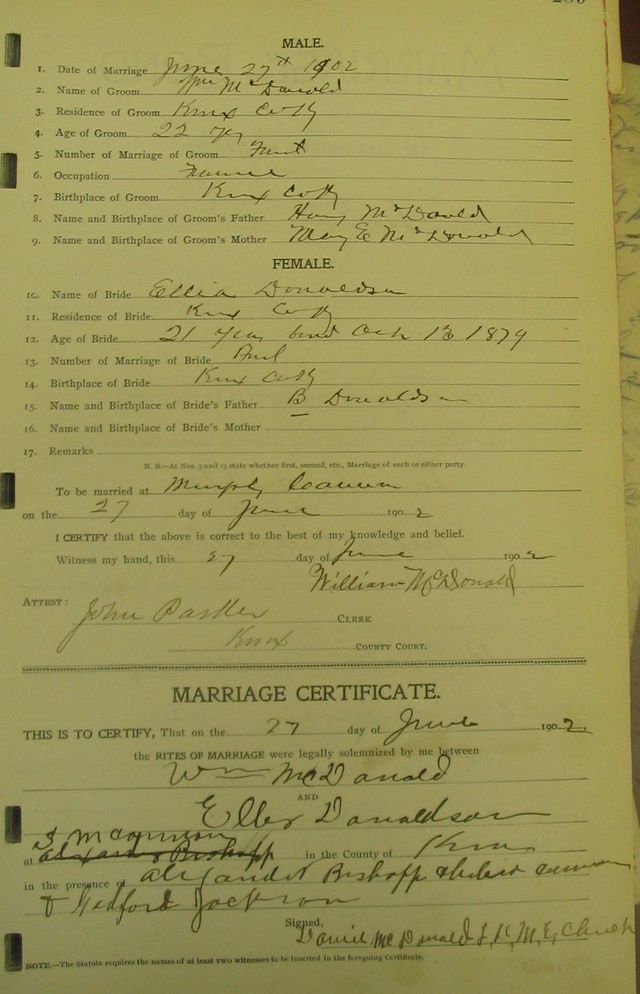 MALE.
1. Date of Marriage June 27th 1902
2. Name of Groom Wm McDonald
3. Residence of Groom Knox Co Ky
4. Age of Groom 22 yrs
5. Number of Marriage of Groom First
6. Occupation Farmer
7. Birthplace of Groom Knox Co Ky
8. Name and Birthplace of Groom's Father McDonald
9. Name and Birthplace of Groom's Mother Mary E McDonald
FEMALE.
10. Name of Bride Donaldson
11. Residence of Bride Knox Co Ky
12. Age of Bride 21 years 13 1879
13. Number of Marriage of Bride
14. Birthplace of Bride Knox Co Ky
15. Name and Birthplace of Bride's Father B Donaldson
16. Name and Birthplace of Bride's Mother
17. Remarks
N. B.—At Nos. 5 and 13 state whether first, second, etc., Marriage of each or either party.
To be married at Murphy
on the 27 day of June 1902
I CERTIFY that the above is correct to the best of my knowledge and belief.
Witness my hand, this 27 day of June 1902
William McDonald
ATTEST: John Parker CLERK
Knox COUNTY COURT.
MARRIAGE CERTIFICATE.
THIS IS TO CERTIFY, That on the 27 day of June 1902.
the RITES OF MARRIAGE were legally solemnized by me between
Wm McDonald
AND
Donaldson
at in the County of Knox
in the presence of Bishopp
& Jackson
Signed, Daniel McDonald M. E. Church
NOTE.—The Statute requires the names of at least two witnesses to be inserted in the foregoing Certificate.